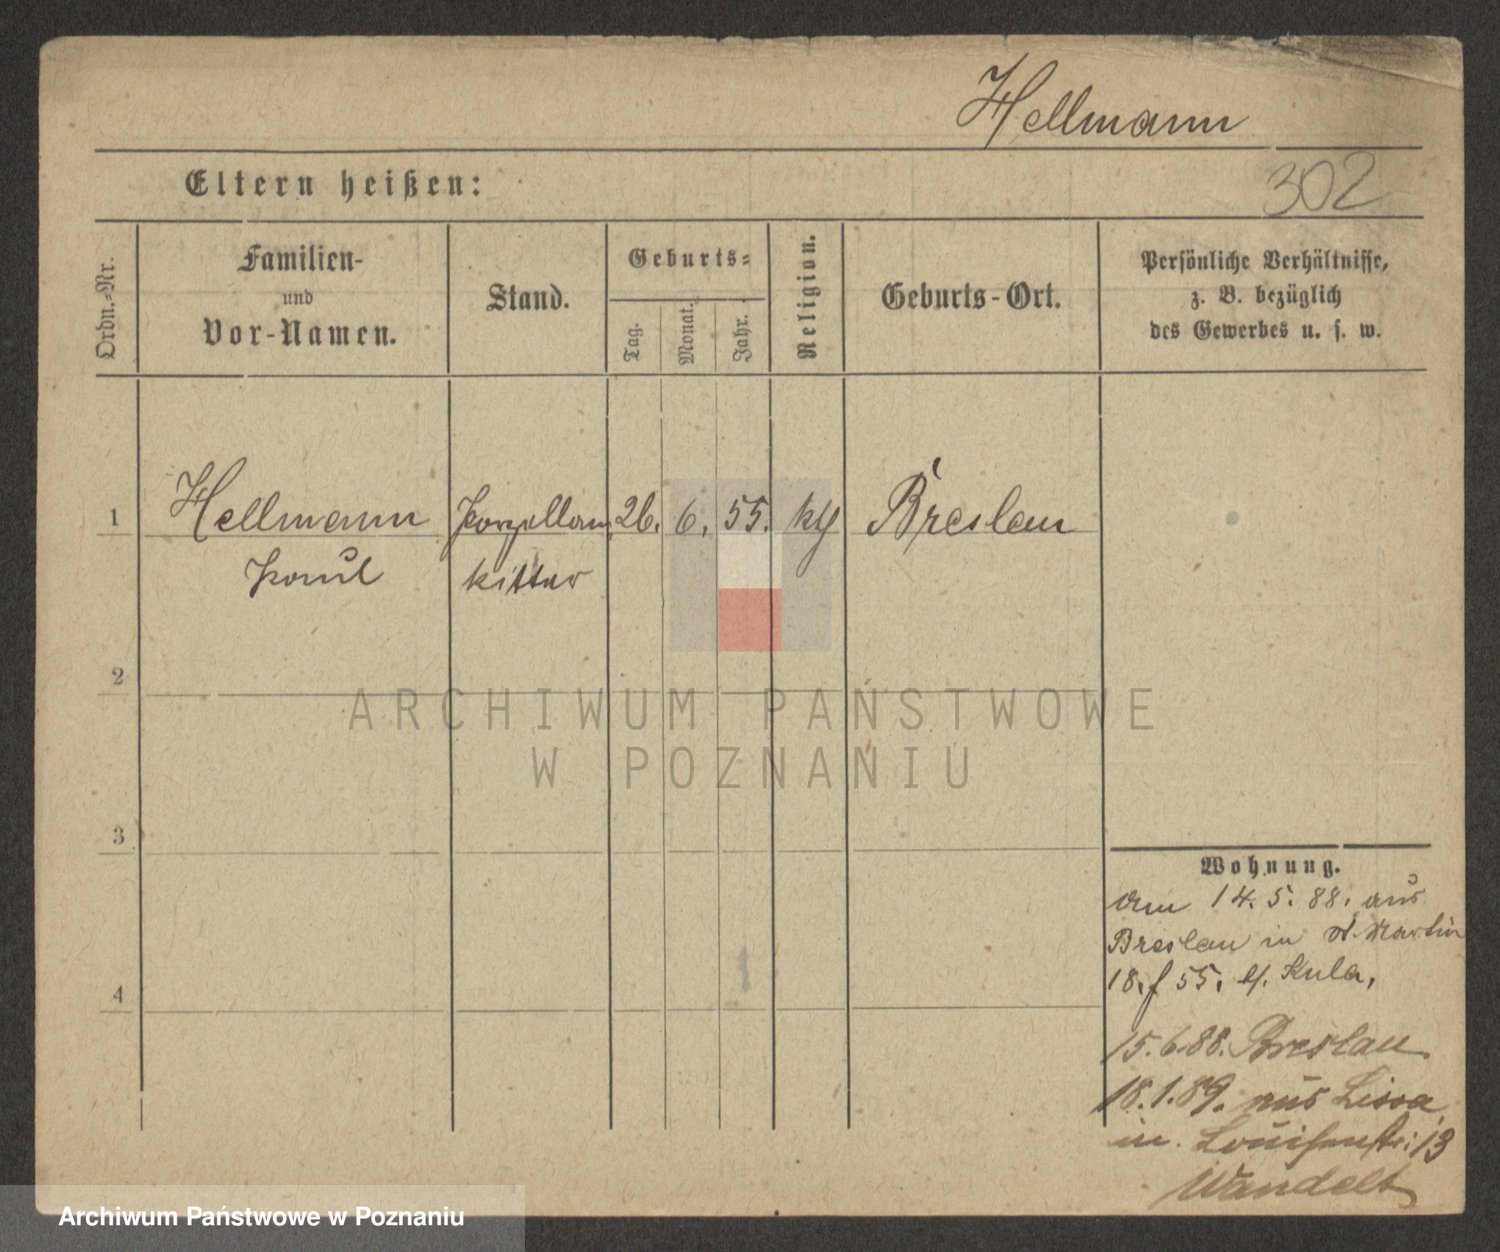 Hellmann
Eltern heißen:
302
Ordn.-Nr.
Familien-
und
Vor-Namen.
Stand.
Geburts-
Tag.
Monat.
Jahr.
Religion.
Geburts-Ort.
Persönliche Verhältnisse,
z. B. bezüglich
des Gewerbes u. s. w.
1
Hellmann Porzellan 26. 6. 55. Breslau
Paul kitter
2
ARCHIWUM PAŃSTWOWE
W POZNANIU
3
Wohnung.
am 14. 5. 88. aus
Breslau in St. Martin
18. 55. Kula,
4
15.6.88. Breslau
18.1.89. aus Lissa
in Louisenstr: 13
Wandelt
Archiwum Państwowe w Poznaniu